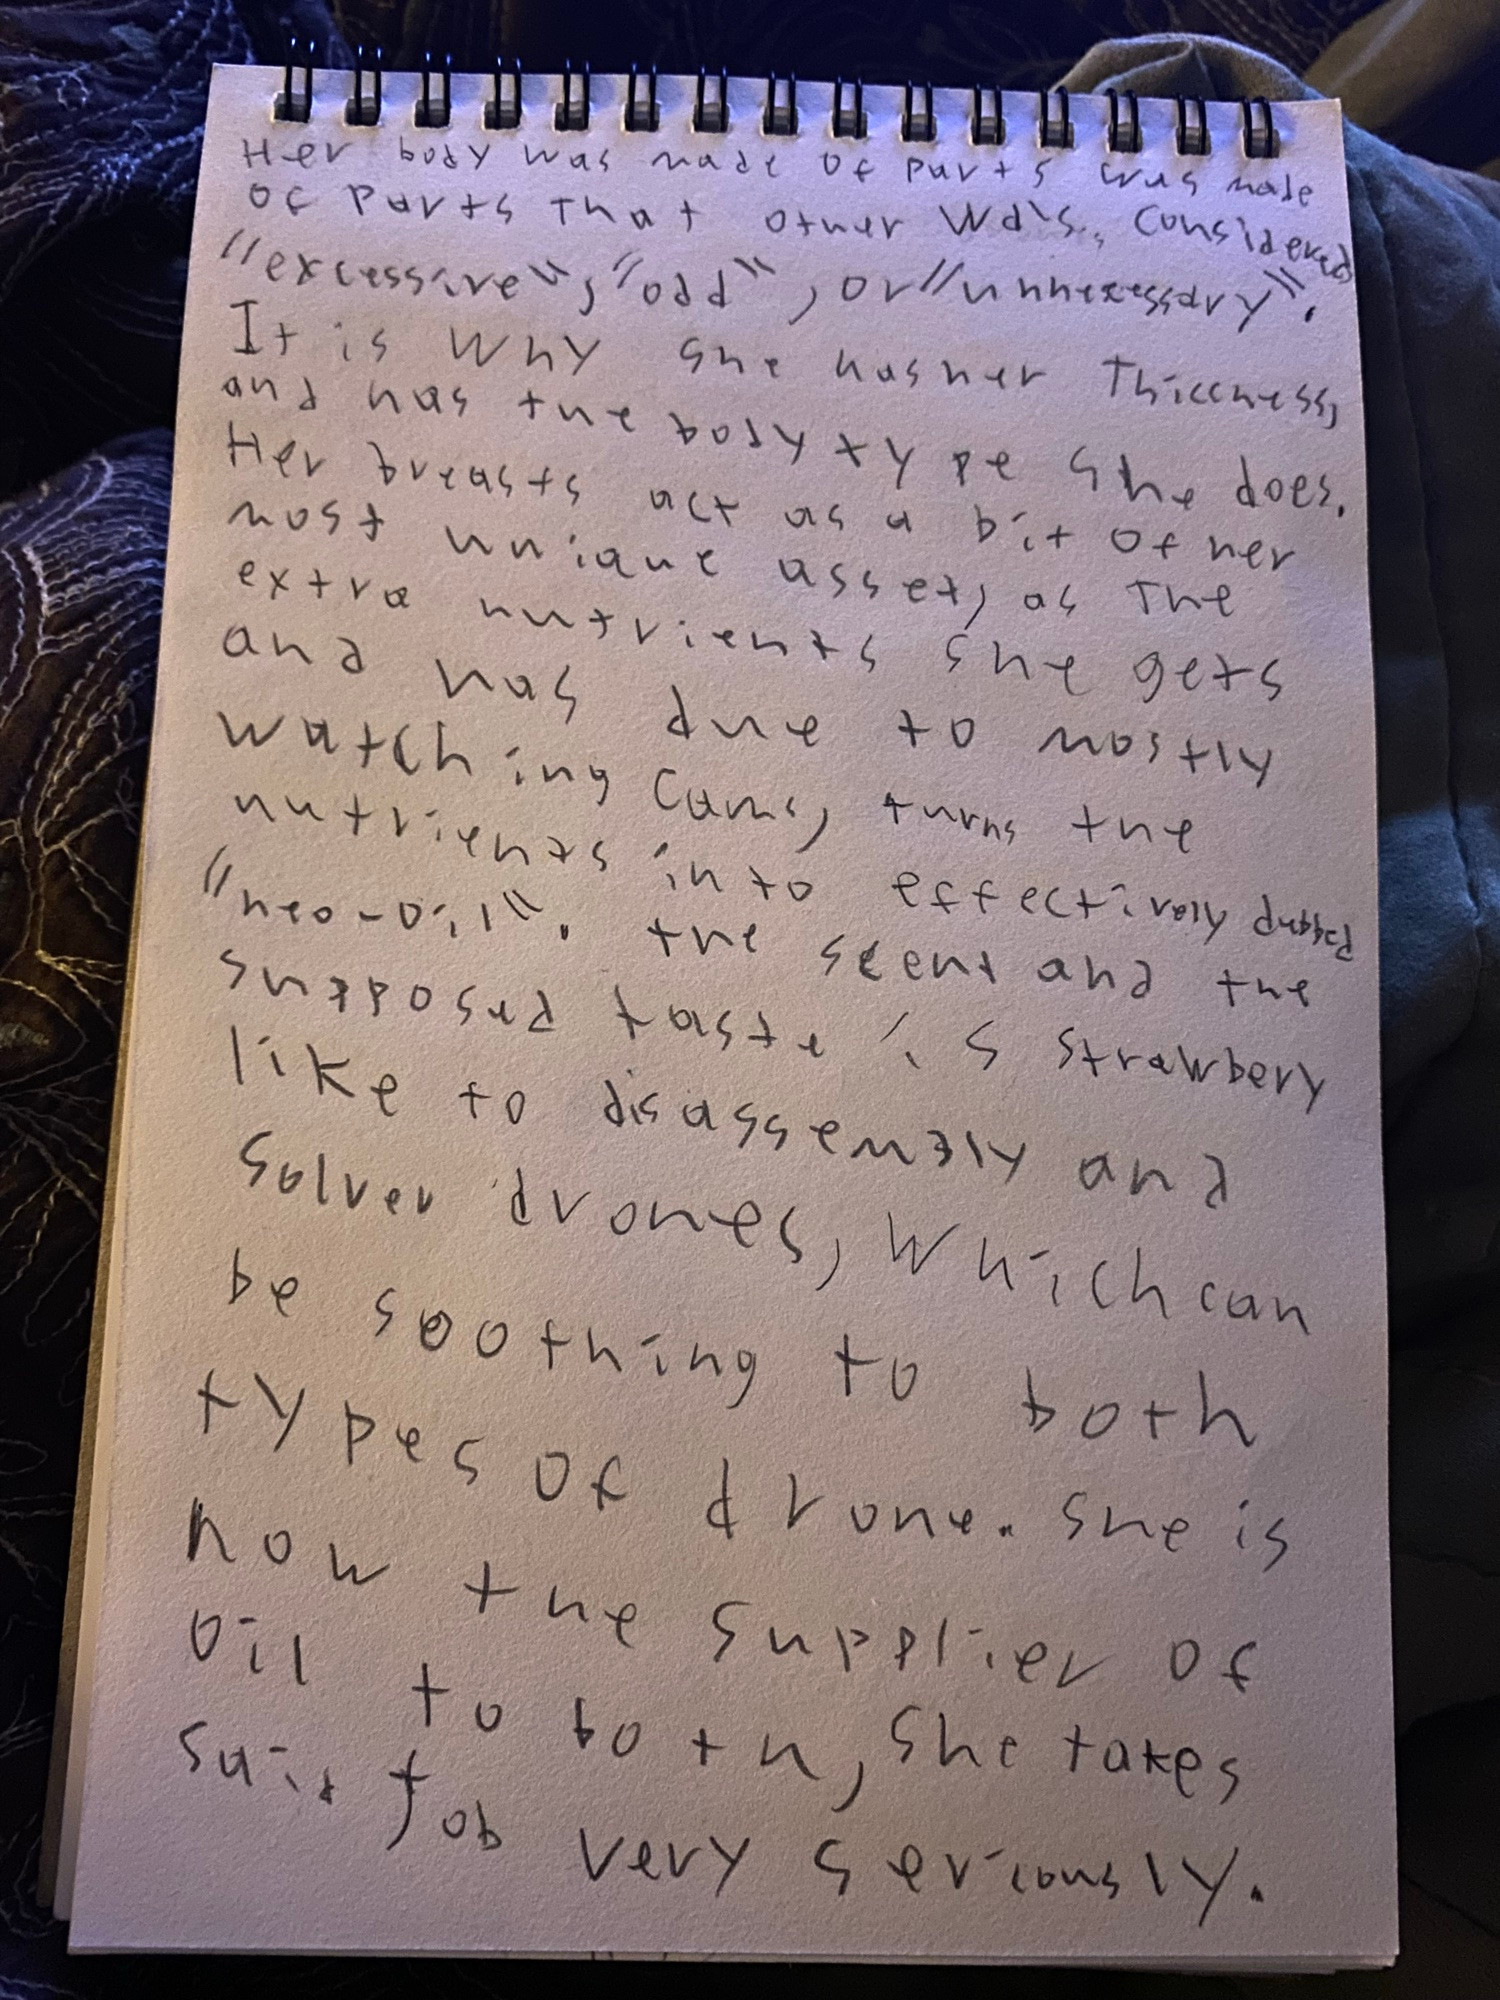 Her body was made of parts was made
of parts that other WD's, considered
"excessive", "odd", or "unnnecessary".
It is why she has her Thiccness,
and has the body type she does.
Her breasts act as a bit of her
most unique asset, as The
extra nutrients she gets
and has due to mostly
watching cams, turns the
nutrients into effectively dubbed
"neo-oil". the scent and the
supposed taste is strawbery
like to disassembly and
solver drones, which can
be soothing to both
types of drone. She is
now the supplier of
oil to both, she takes
said job very seriously.